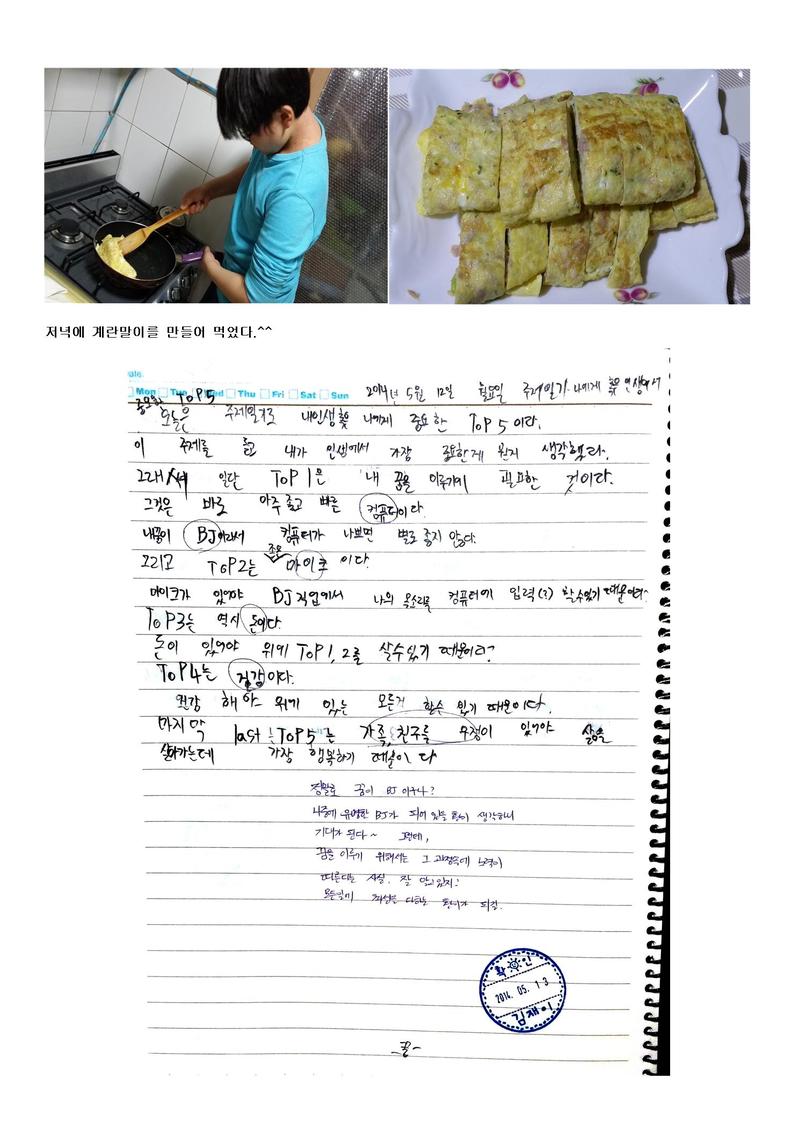 저녁에 계란말이를 만들어 먹었다.^^
Mon Tue Wed Thu Fri Sat Sun 2014년 5월 12일 월요일 주제일기 나에게 인생에서
중요한 ToP5
오늘은 주제일기로 내인생 나에게 중요한 ToP 5이다.
이 주제를 듣고 내가 인생에서 가장 중요한게 뭔지 생각했다.
그래서 일단 ToP 1은 내 꿈을 이루기에 필요한 것이다.
그것은 바로 아주 좋고 빠른 컴퓨터이다.
내꿈이 BJ이라서 컴퓨터가 나쁘면 별로 좋지 않다.
그리고 ToP2는 좋은 마이크 이다.
마이크가 있어야 BJ직업에서 나의 목소리를 컴퓨터에 입력(?) 할수있기 때문이다.
ToP3는 역시 돈이다.
돈이 있어야 위에 ToP1,2를 살수있기 때문이다.
ToP4는 건강이다.
건강 해야 위에 있는 모든거 할수 있기 때문이다.
마지막 last ToP5는 가족,친구들 우정이 있어야 삶을
살아가는데 가장 행복하기 때문이다
정말로 꿈이 BJ 이구나?
나중에 유명한 BJ가 되어 있을 생각하니
기대가 된다~ 그런데,
꿈을 이루기 위해서는 그 과정속에 노력이
따른다는 사실. 잘 알고있지?
모든일에 최선을 다하는 되길.
확인
2014. 05. 13
-끝-